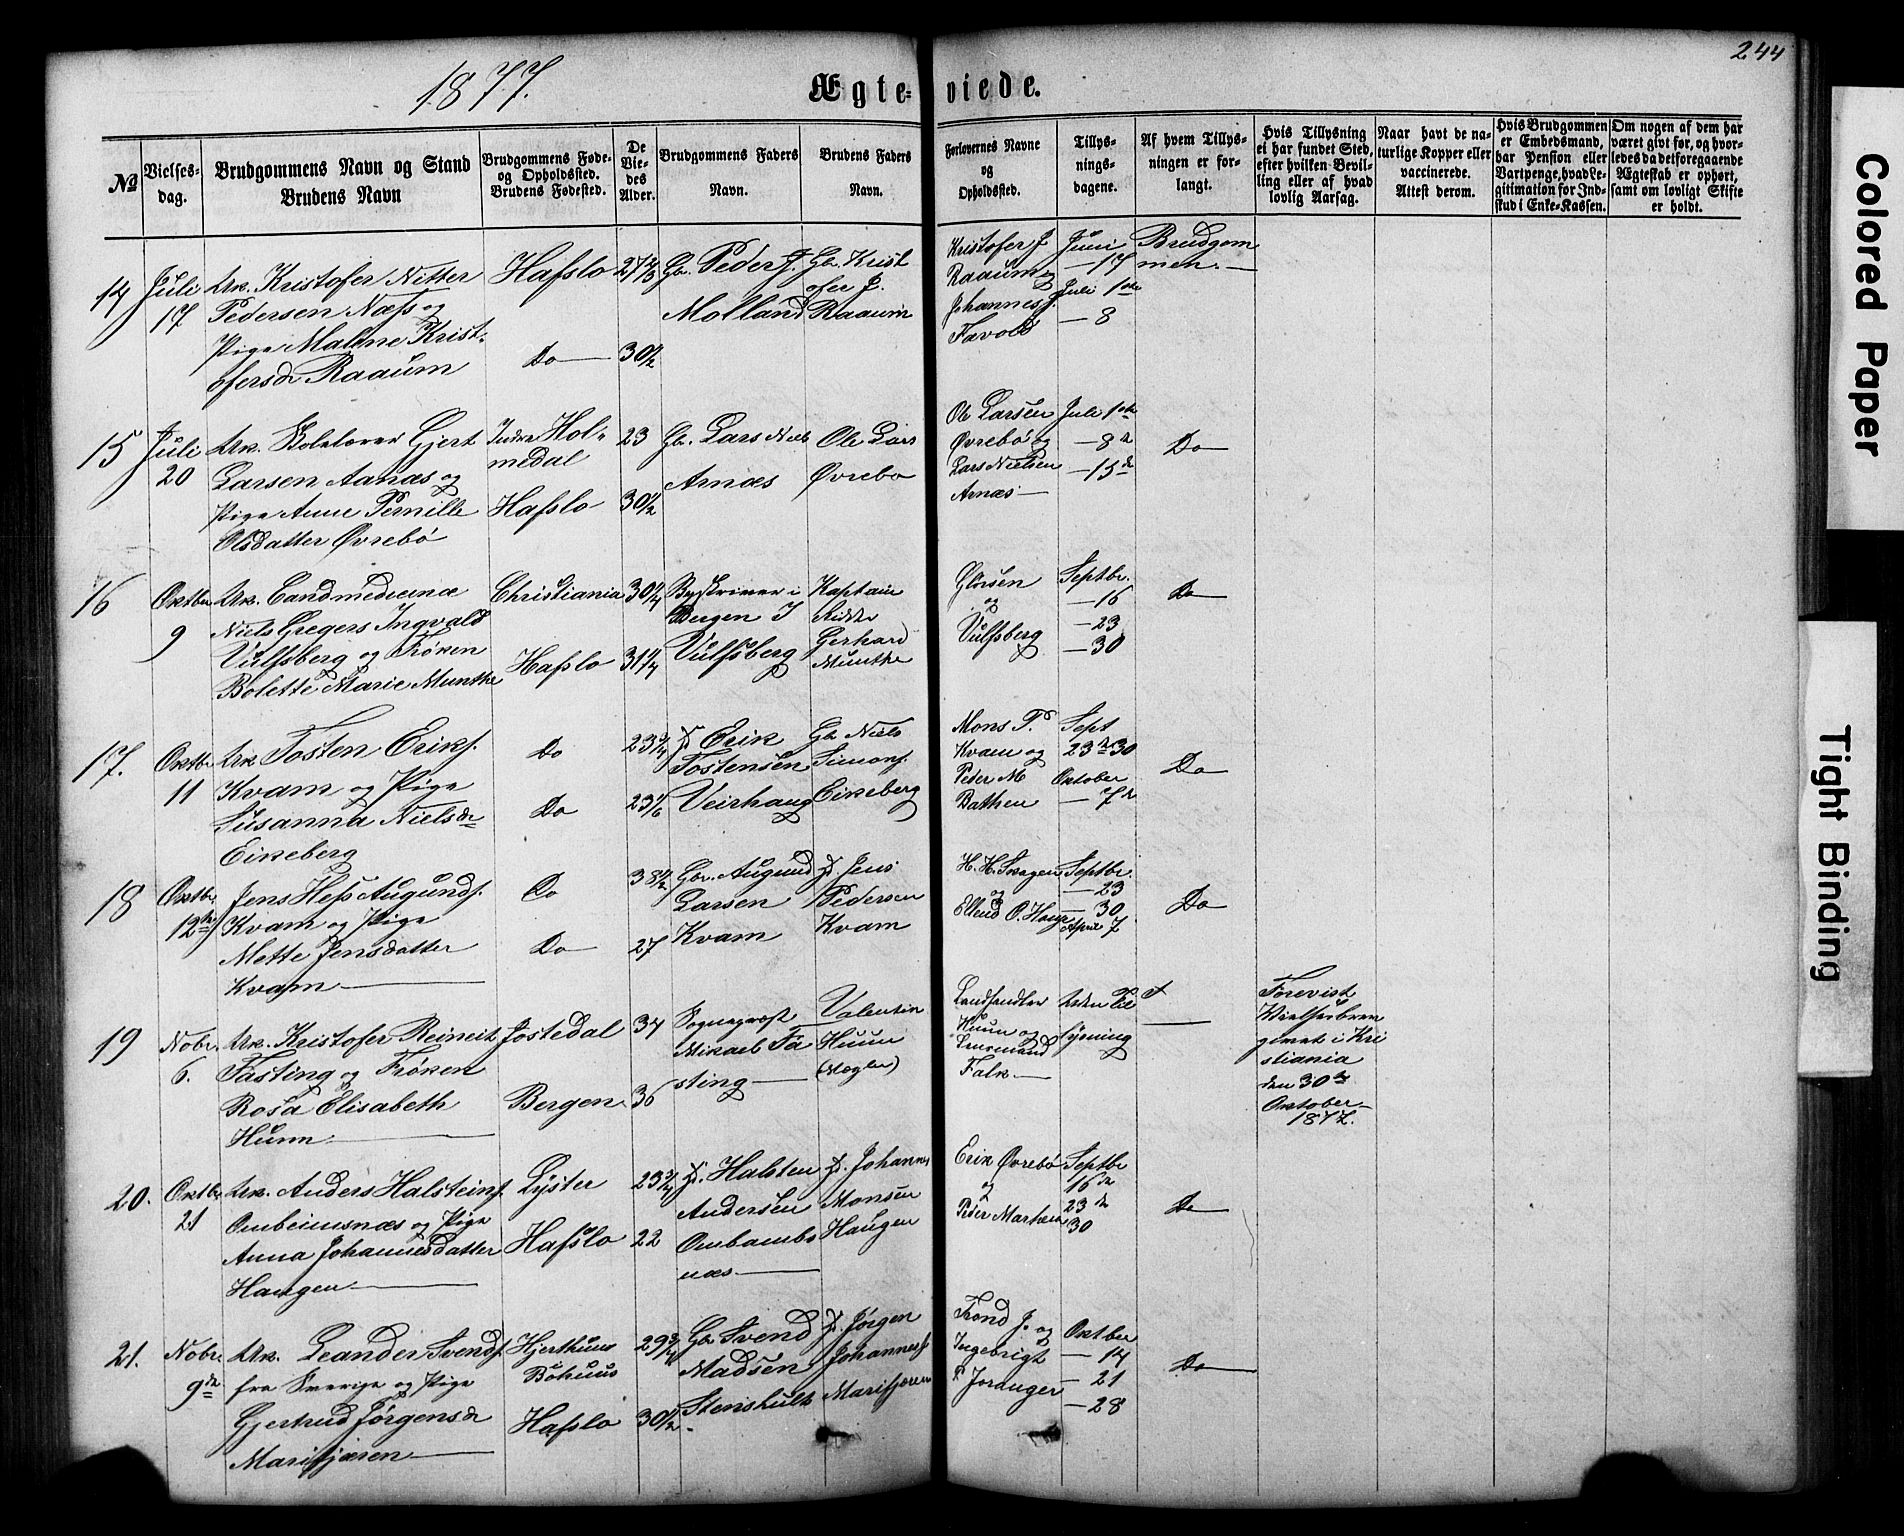 244
1877.
Ægte- viede.
No
Vielses-
dag.
Brudgommens Navn og Stand
Brudens Navn
Brudgommens Føde-
og Opholdssted.
Brudens Fødested.
De
Vie-
des
Alder.
Brudgommens Faders
Navn.
Brudens Faders
Navn.
Forlovernes Navne
og
Opholdssted.
Tillys-
nings-
dagene.
Af hvem Tillys-
ningen er for-
langt.
Hvis Tillysning
ei har fundet Sted,
efter hvilken Bevil-
ling eller af hvad
lovlig Aarsag.
Naar havt de na-
turlige Kopper eller
vaccinerede.
Attest derom.
Hvis Brudgommen
er Embedsmand,
har Pension eller
Vartpenge, hvad Le-
gitimation for Ind-
skud i Enke-Kassen.
Om nogen af dem har
været givt før, og hvor-
ledes da det foregaaende
Ægteskab er ophørt,
samt om lovligt Skifte
er holdt.
14
Juli
17
Uk. Kristofer Nitter
Pedersen Næss og
Pige Malene Krist-
ofersdr Raaum
Hafslo
Do
27 2/3
30 1/2
Gb. Peder J.
Molland
Gb. Krist
ofer J.
Raaum
Kristofer J
Raaum og
Johannes J.
Favold
Juni
— 17
Juli 1ste
— 8
Brudgom
men. —
15
Juli
20
Uk. Skolelærer Gjert
Larsen Aarnæs og
Pige Anne Pernille
Olsdatter Øvrebø
Indre Hol-
medal
Hafslo
23
30 1/2
Gb. Lars Niels
Arnæs
Ole Lars
Øvrebø
Ole Larsen
Øvrebø og
Lars Nielsen
Arnæs —
Juli 1ste
— 8de
— 15de
Do
16
Oktbr
9
Uk. Candmedicinæ
Niels Gregers Ingvald
Vulfsberg og Frøken
Bolette Marie Munthe
Christiania
Hafslo
30 1/4
31 1/4
Byskriver i
Bergen J
Vulfsberg
Kaptain
Ridder
Gerhard
Munthe
og
Vulfsberg
Septbr.
— 16
— 23
— 30
Do
17.
Oktbr
11
Uk Tosten Eriks.
Kvam og Pige
Susanna Nielsdr
Eikeberg
Do
Do
23 3/4
23 1/6
Erik
Tostensen
Veirhaug
Gb Niels
Simons.
Eikeberg
Mons T.
Kvam og
Peder M
Bathen
Sept
23de 30
Oktober
— 7de
Do
18
Oktbr.
12te
Jens Hess Augunds.
Kvam og Pige
Mette Jensdatter
Kvam —
Do
Do
38 1/2
27
Gbr. Augund
Larsen
Kvam
Jens
Pedersen
Kvam
H. H. Skagen
og
Ellend O. Haug
Septbr.
— 23
— 30
April 7
Do
19
Nobr.
6.
Uk. Kristofer Reineit
Fasting og Frøken
Rosa Elisabeth
Huun —
Jostedal
Bergen
34
36
Sogneprest
Mikael Fa
sting —
Valentin
Huun
(Mægler)
Landhandler
Huun og
Lensmand
Falk —
Uden Til
lysning
Forevist
Vielsesbrev
givet i Kri
stiania
den 30te
Oktober
1877.
20.
Oktbr
21
Uk. Anders Halsteins.
Ombeimsnæs og Pige
Anna Johannesdatter
Haugen —
Lyster
Hafslo
23 3/4
22
Halsten
Andersen
Ombambs
næs —
Johannes
Monsen
Haugen
Erik Øvrebø
og
Peder Marheim
Septbr
16de
23de
30
Do
21.
Nobr.
9de
Uk. Leander Svends.
fra Sverige og Pige
Gjertrud Jørgensdr
Marifjæren —
Hjerthuus
Bohuus
Hafslo
29 3/4
30 1/2
Gb Svend
Madsen
Stenshult
Jørgen
Johanness
Marifjæren
Trond J. og
Ingebrigt
Joranger
Oktber
— 14
— 21
— 28
Do
Colored Paper
Tight Binding